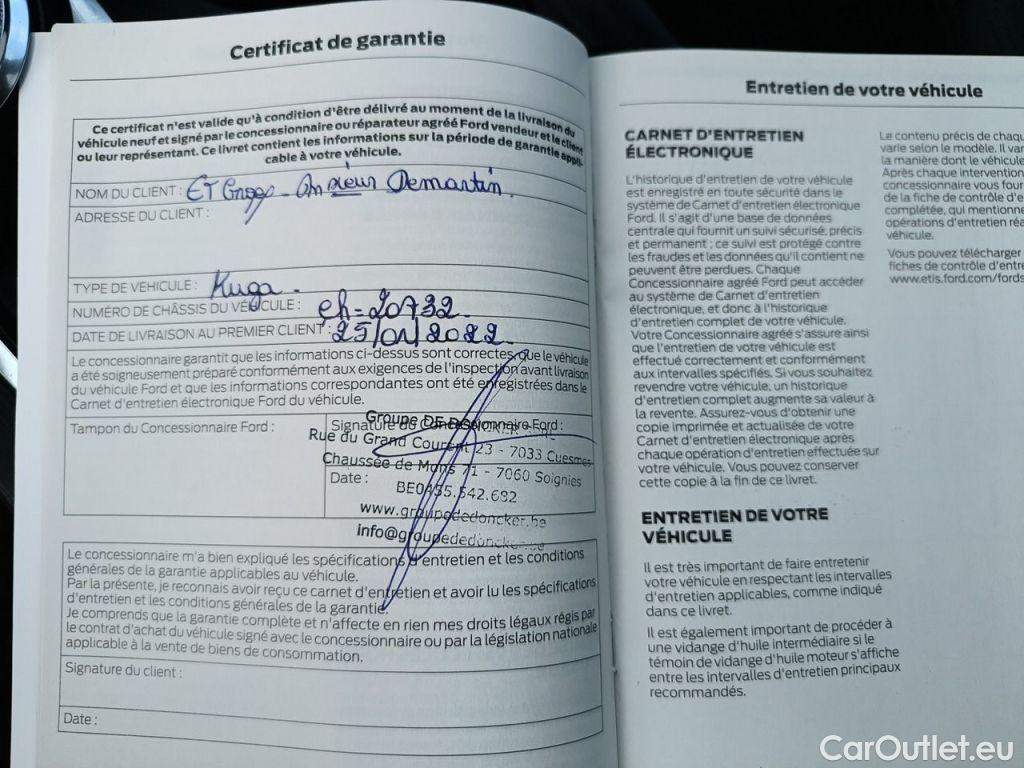 Certificat de garantie
Ce certificat n'est valide qu'à condition d'être délivré au moment de la livraison du
véhicule neuf et signé par le concessionnaire ou réparateur agréé Ford vendeur et le client
ou leur représentant. Ce livret contient les informations sur la période de garantie appli-
cable à votre véhicule.
NOM DU CLIENT : Demartin
ADRESSE DU CLIENT :
TYPE DE VEHICULE : Kuga
NUMÉRO DE CHÂSSIS DU VÉHICULE : ch=20732
DATE DE LIVRAISON AU PREMIER CLIENT : 25/01/2022
Le concessionnaire garantit que les informations ci-dessus sont correctes, que le véhicule
a été soigneusement préparé conformément aux exigences de l'inspection avant livraison
du véhicule Ford et que les informations correspondantes ont été enregistrées dans le
Carnet d'entretien électronique Ford du véhicule.
Tampon du Concessionnaire Ford :
Signature du Concessionnaire Ford :
Groupe DE DONCKER
Rue du Grand Courent 23 - 7033 Cuesmes
Chaussée de Mons 71 - 7060 Soignies
Date :
BE0455.542.682
www.groupededoncker.be
info@groupededoncker.be
Le concessionnaire m'a bien expliqué les spécifications d'entretien et les conditions
générales de la garantie applicables au véhicule.
Par la présente, je reconnais avoir reçu ce carnet d'entretien et avoir lu les spécifications
d'entretien et les conditions générales de la garantie.
Je comprends que la garantie complète et n'affecte en rien mes droits légaux régis par
le contrat d'achat du véhicule signé avec le concessionnaire ou par la législation nationale
applicable à la vente de biens de consommation.
Signature du client :
Date :
Entretien de votre véhicule
CARNET D'ENTRETIEN
ÉLECTRONIQUE
L'historique d'entretien de votre véhicule
est enregistré en toute sécurité dans le
système de Carnet d'entretien électronique
Ford. Il s'agit d'une base de données
centrale qui fournit un suivi sécurisé, précis
et permanent ; ce suivi est protégé contre
les fraudes et les données qu'il contient ne
peuvent être perdues. Chaque
Concessionnaire agréé Ford peut accéder
au système de Carnet d'entretien
électronique, et donc à l'historique
d'entretien complet de votre véhicule.
Votre Concessionnaire agréé s'assure ainsi
que l'entretien de votre véhicule est
effectué correctement et conformément
aux intervalles spécifiés. Si vous souhaitez
revendre votre véhicule, un historique
d'entretien complet augmente sa valeur à
la revente. Assurez-vous d'obtenir une
copie imprimée et actualisée de votre
Carnet d'entretien électronique après
chaque opération d'entretien effectuée sur
votre véhicule. Vous pouvez conserver
cette copie à la fin de ce livret.
ENTRETIEN DE VOTRE
VÉHICULE
Il est très important de faire entretenir
votre véhicule en respectant les intervalles
d'entretien applicables, comme indiqué
dans ce livret.
Il est également important de procéder à
une vidange d'huile intermédiaire si le
témoin de vidange d'huile moteur s'affiche
entre les intervalles d'entretien principaux
recommandés.
Le contenu précis de chaq
varie selon le modèle. Il var
la manière dont le véhicule
Après chaque intervention
concessionnaire vous four
de la fiche de contrôle d'e
complétée, qui mentionne
opérations d'entretien réa
véhicule.
Vous pouvez télécharger
fiches de contrôle d'entre
www.etis.ford.com/fords
CarOutlet.eu